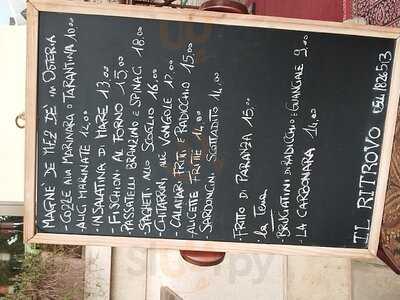 MAGNE' DE MIEZ DE' 
- COZZE ALLA MARINARA O TARANTINA 10.00
- ALICI MARINATE 14.00
- INSALATINA DI MARE 13.00
- FISCHIONI AL FORNO 15.00
- PASSATELLI BRANZINO E SPINACI 18.00
- SPAGHETTI ALLO SCOGLIO 16.00
- CHITARRINI ALLE VONGOLE 17.00
- CALAMARI FRITTI E RADICCHIO 15.00
- ALICETTE FRITTE 14.00
- SARDONCINI SCOTTADITO 14.00
- FRITTO DI PARANZA 15.00
- BRINGATTINI DI RADICCHIO E GUANCIALE 9.00
- LA CARBONARA 14.00
IL RITROVO 0541 826513